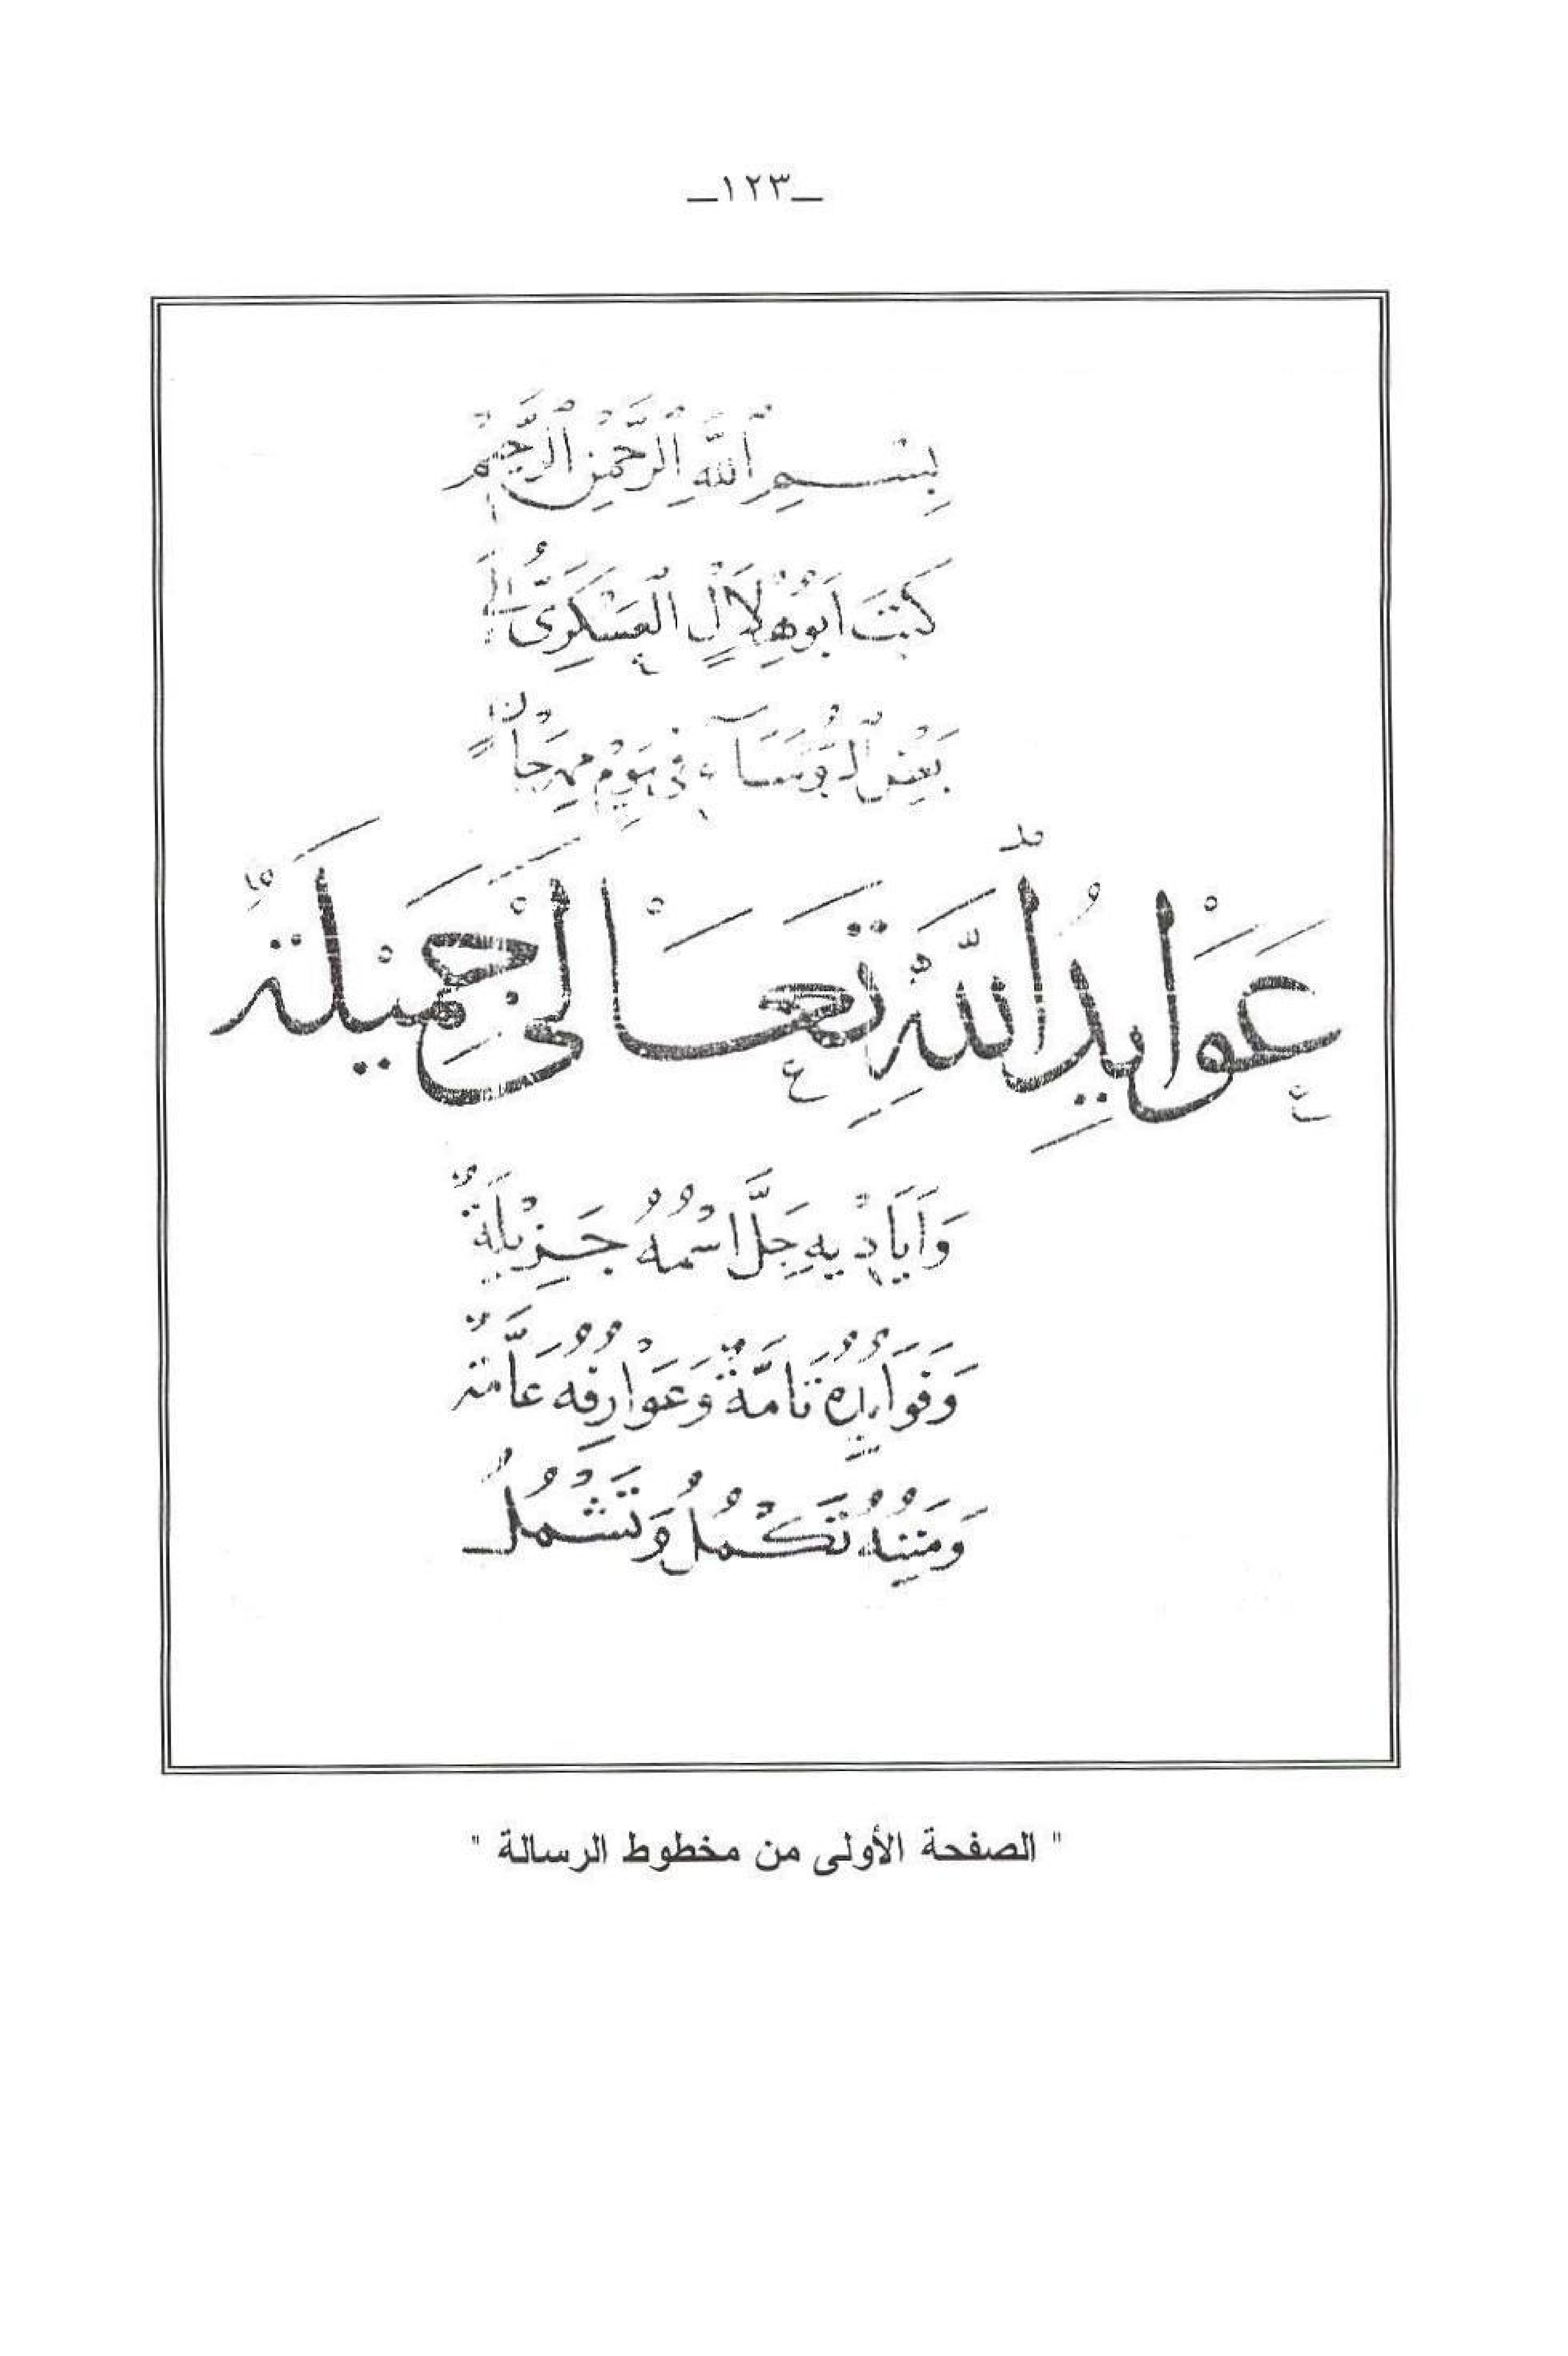 ـ١٢٣ـ
بِسْمِ ٱللَّهِ ٱلرَّحْمٰنِ ٱلرَّحِيمْ
كَتَبَ اَبُوْهِلَالٍ ٱلْعَسْكَرِىُّ إِلَى
بَعْضِ ٱلرُّؤَسَآءِ فِى يَوْمِ مِهْرَجَانٍ
عَوَايِدُ ٱللَّهِ تَعَالَى جَمِيْلَةٌ
وَاَيَادِيْهِ جَلَّ اسْمُهُ جَزِيْلَةٌ
وَفَوَايِدُهُ تَامَّةٌ وَعَوَارِفُهُ عَامَّةٌ
وَمِنَنُهُ تَكْمُلُ وَتَشْمُلُ
" الصفحة الأولى من مخطوط الرسالة "